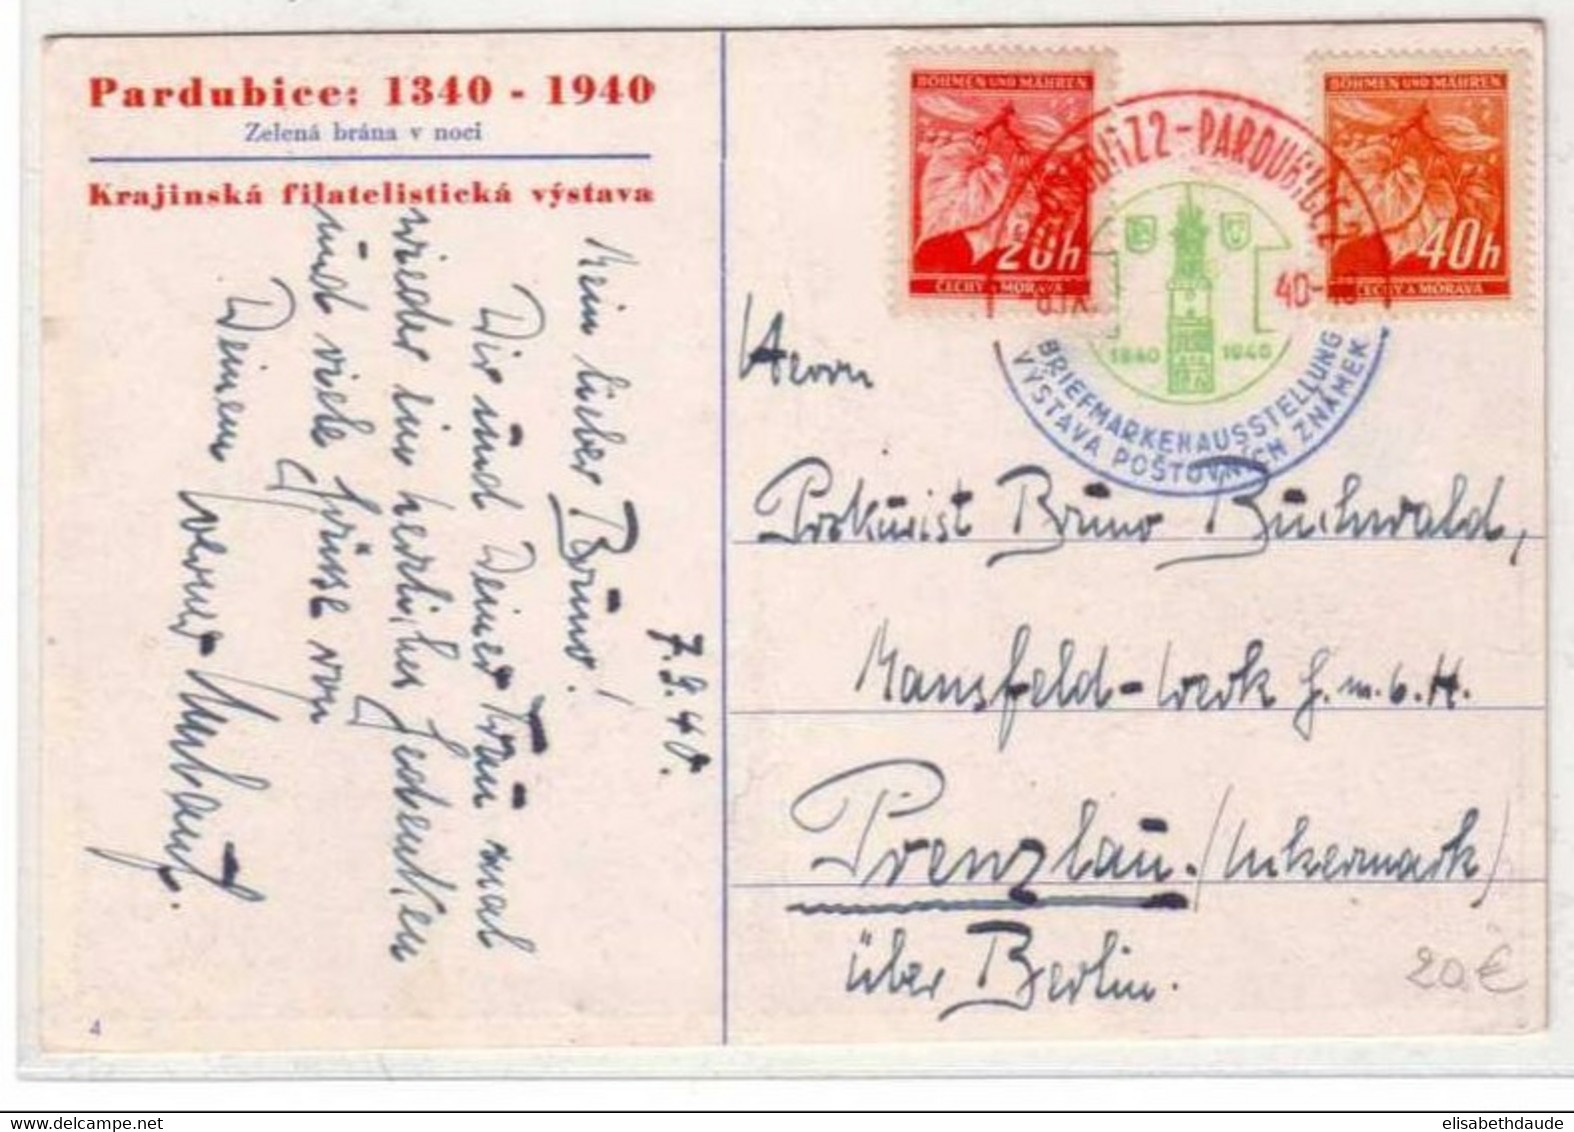 Pardubice: 1340 - 1940
Zelená brána v noci
Krajinská filatelistická výstava
7.9.40.
Mein lieber Bruno!
Dir und Deiner Frau mal
wieder ein herzliches Gedenken
und viele Grüsse von
Deinem
4
BÖHMEN UND MÄHREN
20h
ČECHY A MORAVA
BÖHMEN UND MÄHREN
40h
ČECHY A MORAVA
2-PARDUBICE 2
1340 1940
BRIEFMARKENAUSSTELLUNG
VÝSTAVA POŠTOVNÍCH ZNÁMEK
Herrn
Prokurist Bruno Buchwald,
Mansfeld-Werk G.m.b.H.
Prenzlau. /Uckermark/
über Berlin.
20.€
elisabethdaude